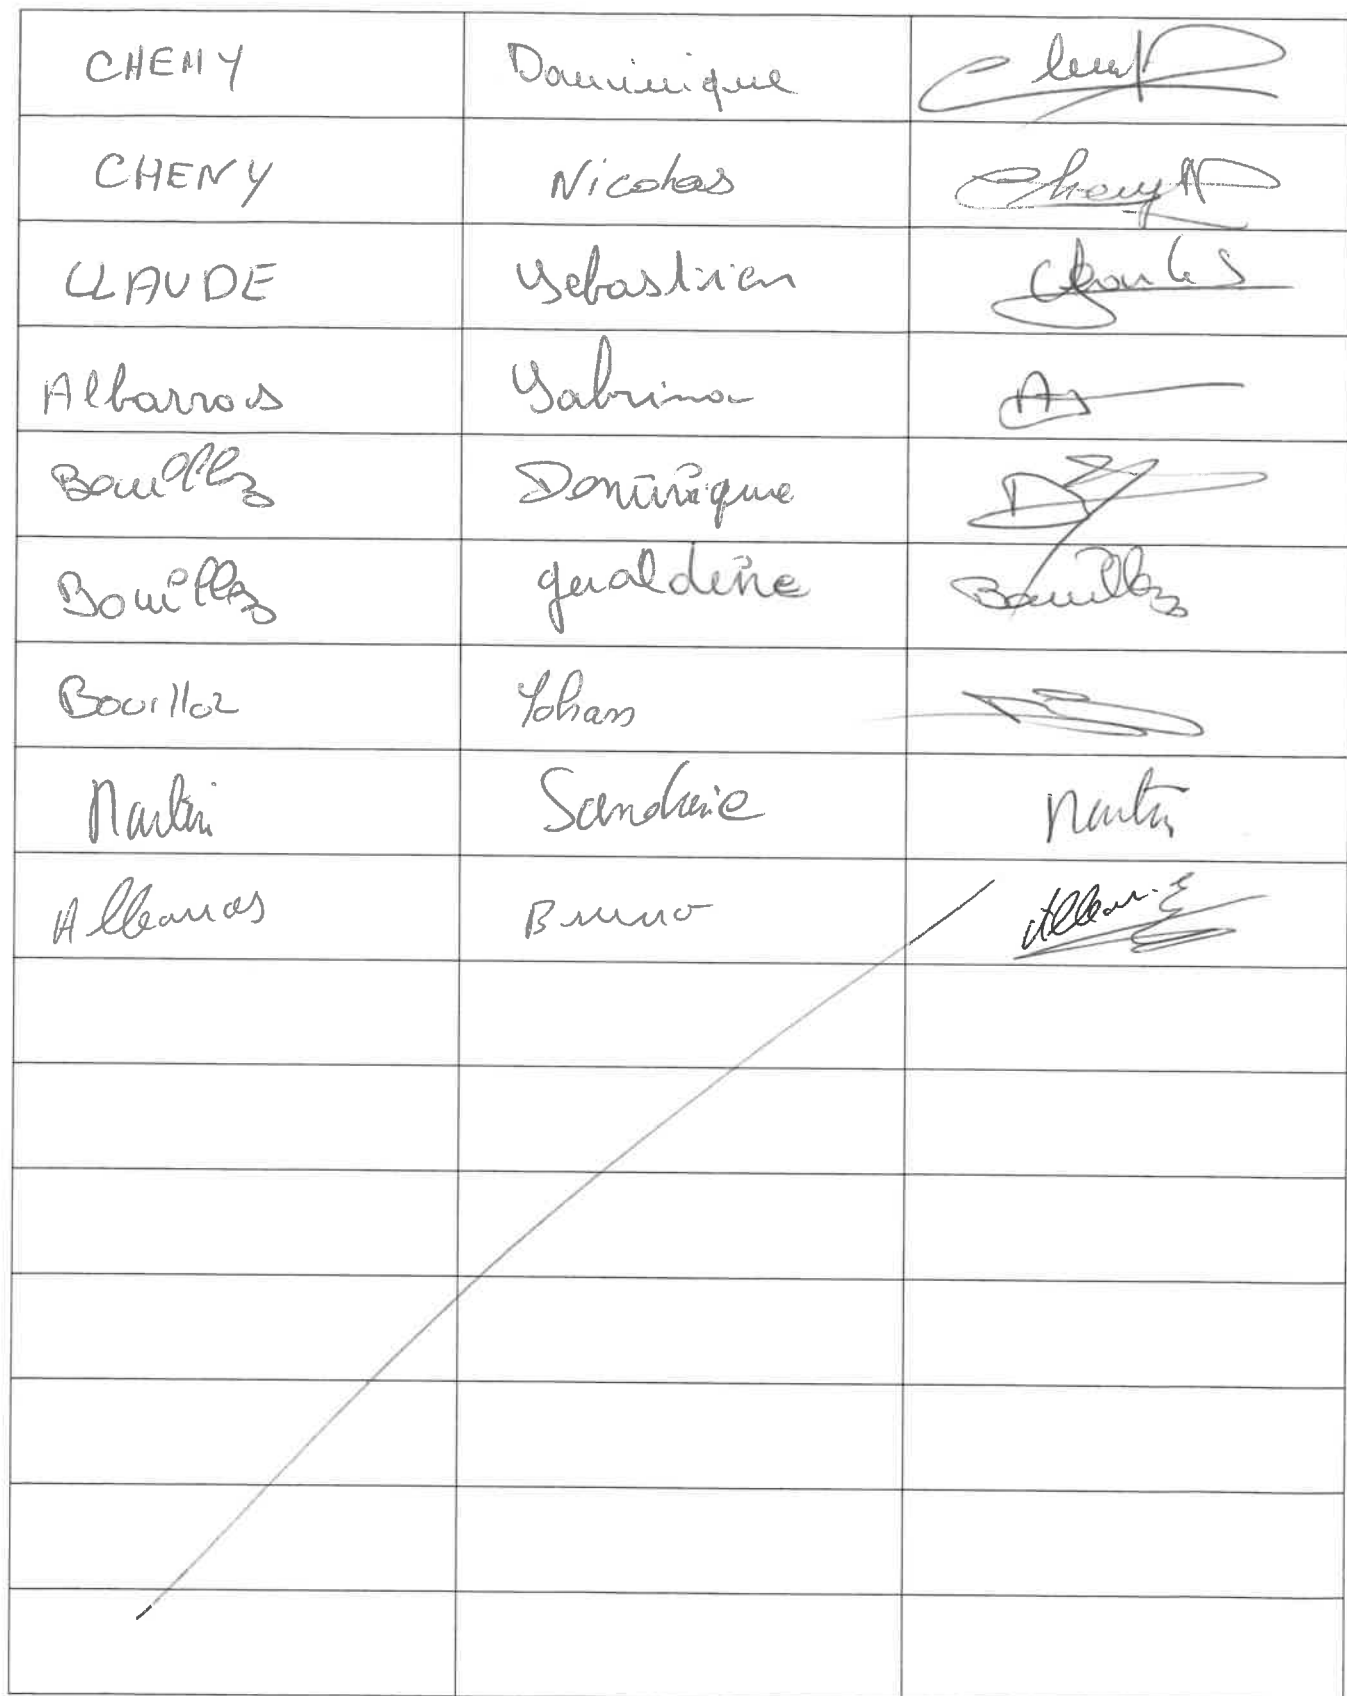 CHENY Dominique
CHENY Nicolas Cheny N
CLAUDE Sebastien
Albarras Sabrina
Bouilloz Dominique
Bouilloz geraldine Bouilloz
Bouilloz Yohan
Martin Sandrine Martin
Albarras Bruno